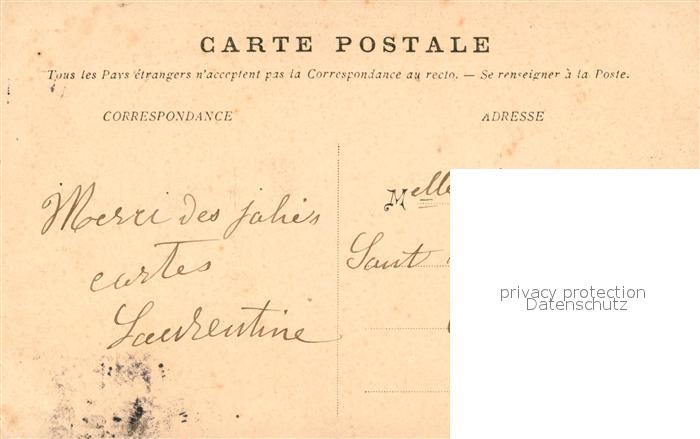 CARTE POSTALE
Tous les Pays étrangers n'acceptent pas la Correspondance au recto. — Se renseigner à la Poste.
CORRESPONDANCE
ADRESSE
Merci des jolies
cartes
Laurentine
Melle
Saut
privacy protection
Datenschutz